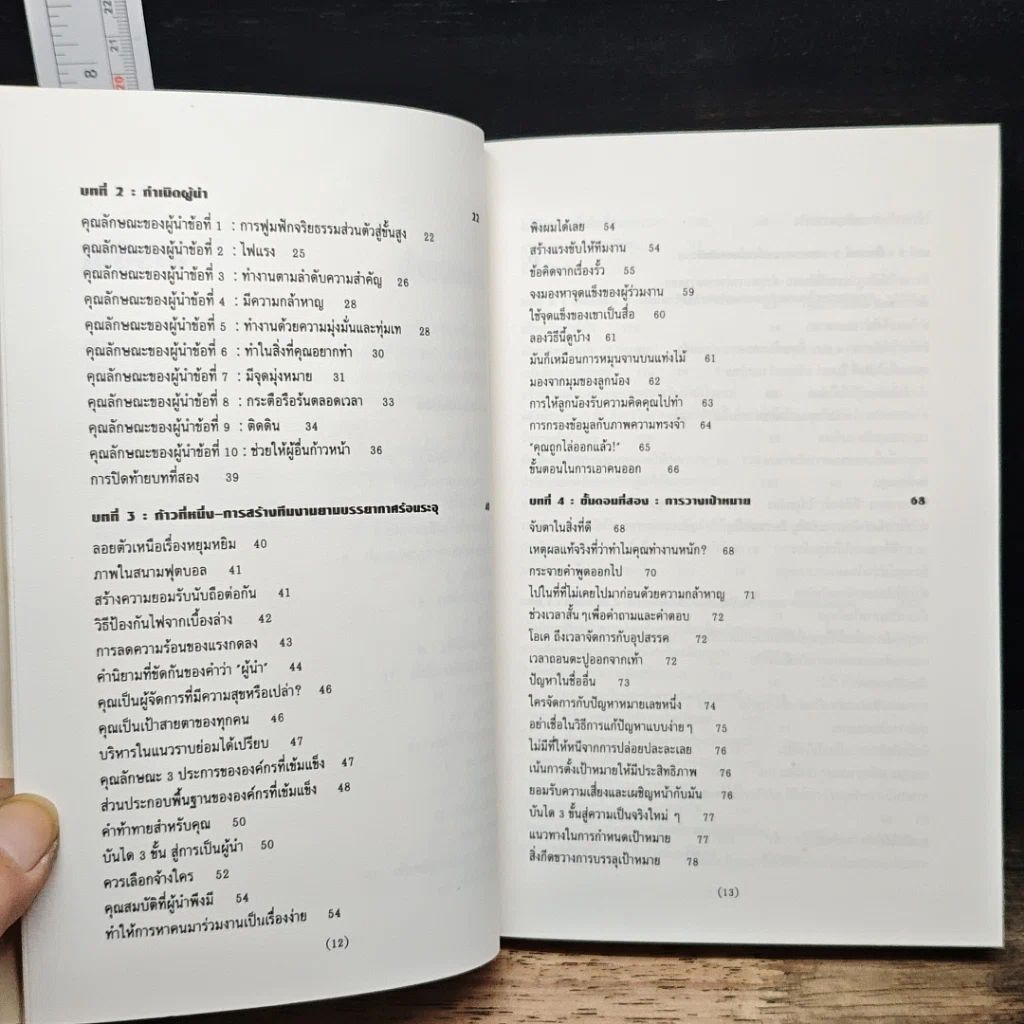 บทที่ 2 : กำเนิดผู้นำ 22
คุณลักษณะของผู้นำข้อที่ 1 : การฟูมฟักจริยธรรมส่วนตัวสู่ขั้นสูง 22
คุณลักษณะของผู้นำข้อที่ 2 : ไฟแรง 25
คุณลักษณะของผู้นำข้อที่ 3 : ทำงานตามลำดับความสำคัญ 26
คุณลักษณะของผู้นำข้อที่ 4 : มีความกล้าหาญ 28
คุณลักษณะของผู้นำข้อที่ 5 : ทำงานด้วยความมุ่งมั่นและทุ่มเท 28
คุณลักษณะของผู้นำข้อที่ 6 : ทำในสิ่งที่คุณอยากทำ 30
คุณลักษณะของผู้นำข้อที่ 7 : มีจุดมุ่งหมาย 31
คุณลักษณะของผู้นำข้อที่ 8 : กระตือรือร้นตลอดเวลา 33
คุณลักษณะของผู้นำข้อที่ 9 : ติดดิน 34
คุณลักษณะของผู้นำข้อที่ 10 : ช่วยให้ผู้อื่นก้าวหน้า 36
การปิดท้ายบทที่สอง 39
บทที่ 3 : ก้าวที่หนึ่ง-การสร้างทีมงานยามบรรยากาศร้อนระอุ
ลอยตัวเหนือเรื่องหยุมหยิม 40
ภาพในสนามฟุตบอล 41
สร้างความยอมรับนับถือต่อกัน 41
วิธีป้องกันไฟจากเบื้องล่าง 42
การลดความร้อนของแรงกดลง 43
คำนิยามที่ขัดกันของคำว่า "ผู้นำ" 44
คุณเป็นผู้จัดการที่มีความสุขหรือเปล่า? 46
คุณเป็นเป้าสายตาของทุกคน 46
บริหารในแนวราบย่อมได้เปรียบ 47
คุณลักษณะ 3 ประการขององค์กรที่เข้มแข็ง 47
ส่วนประกอบพื้นฐานขององค์กรที่เข้มแข็ง 48
คำท้าทายสำหรับคุณ 50
บันได 3 ขั้น สู่การเป็นผู้นำ 50
ควรเลือกจ้างใคร 52
คุณสมบัติที่ผู้นำพึงมี 54
ทำให้การหาคนมาร่วมงานเป็นเรื่องง่าย 54
(12)
พึงผมได้เลย 54
สร้างแรงขับให้ทีมงาน 54
ข้อคิดจากเรื่องรั้ว 55
จงมองหาจุดแข็งของผู้ร่วมงาน 59
ใช้จุดแข็งของเขาเป็นสื่อ 60
ลองวิธีนี้ดูบ้าง 61
มันก็เหมือนการหมุนจานบนแท่งไม้ 61
มองจากมุมของลูกน้อง 62
การให้ลูกน้องรับความคิดคุณไปทำ 63
การกรองข้อมูลกับภาพความทรงจำ 64
"คุณถูกไล่ออกแล้ว!" 65
ขั้นตอนในการเอาคนออก 66
บทที่ 4 : ขั้นตอนที่สอง : การวางเป้าหมาย 68
จับตาในสิ่งที่ดี 68
เหตุผลแท้จริงที่ว่าทำไมคุณทำงานหนัก? 68
กระจายคำพูดออกไป 70
ไปในที่ที่ไม่เคยไปมาก่อนด้วยความกล้าหาญ 71
ช่วงเวลาสั้น ๆเพื่อคำถามและคำตอบ 72
โอเค ถึงเวลาจัดการกับอุปสรรค 72
เวลาถอนตะปูออกจากเท้า 72
ปัญหาในชื่ออื่น 73
ใครจัดการกับปัญหาหมายเลขหนึ่ง 74
อย่าเชื่อในวิธีการแก้ปัญหาแบบง่าย ๆ 75
ไม่มีที่ให้หนีจากการปล่อยปละละเลย 76
เน้นการตั้งเป้าหมายให้มีประสิทธิภาพ 76
ยอมรับความเสี่ยงและเผชิญหน้ากับมัน 76
บันได 3 ขั้นสู่ความเป็นจริงใหม่ ๆ 77
แนวทางในการกำหนดเป้าหมาย 77
สิ่งกีดขวางการบรรลุเป้าหมาย 78
(13)